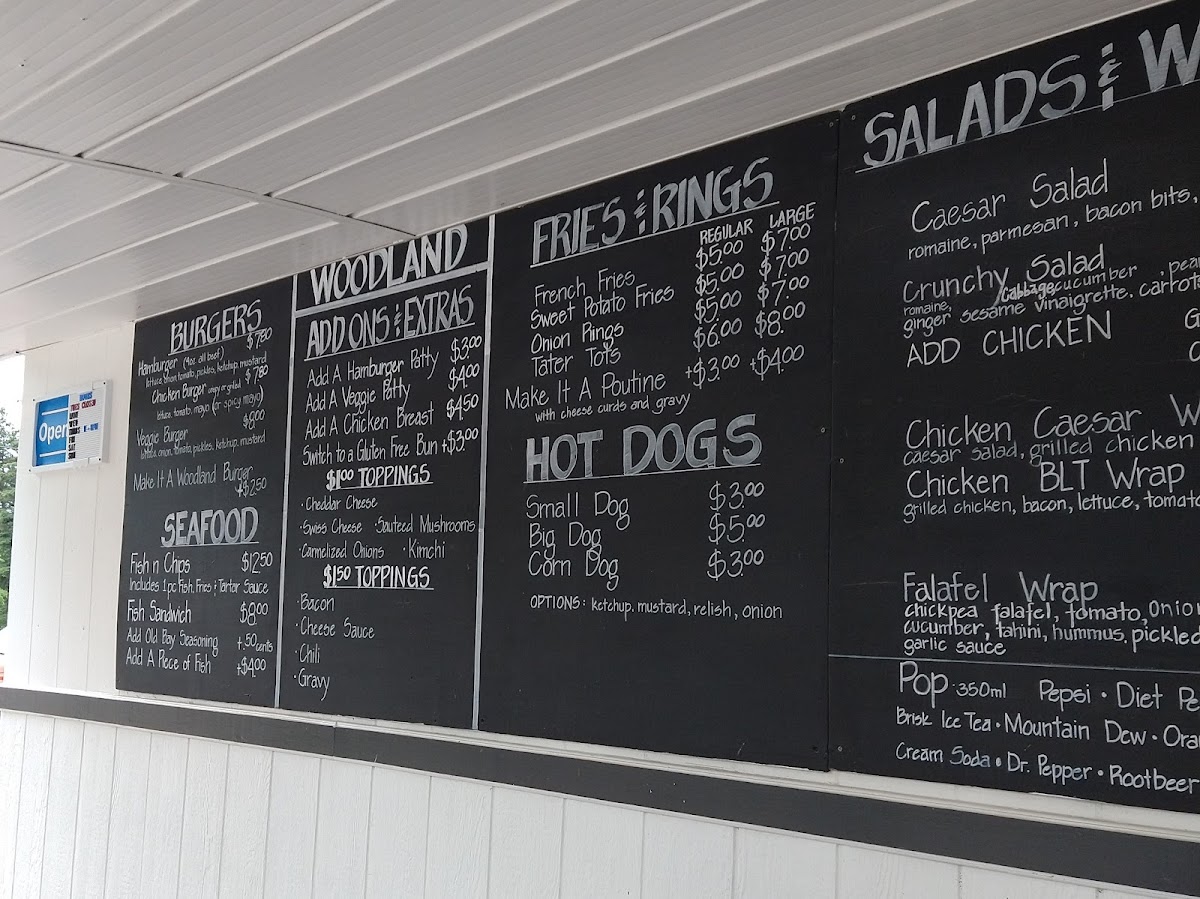 Open
BURGERS
Hamburger (4oz all beef) $7.80
lettuce, onion, tomato, pickles, ketchup, mustard
Chicken Burger crispy or grilled $7.80
lettuce, tomato, mayo (or spicy mayo)
Veggie Burger $8.00
lettuce, onion, tomato, pickles, ketchup, mustard
Make It A Woodland Burger
+$2.50
SEAFOOD
Fish n Chips $12.50
Includes 1 pc Fish, Fries & Tartar Sauce
Fish Sandwich $8.00
Add Old Bay Seasoning +.50 cents
Add A Piece of Fish +$4.00
WOODLAND
ADD ONS & EXTRAS
Add A Hamburger Patty $3.00
Add A Veggie Patty $4.00
Add A Chicken Breast $4.50
Switch to a Gluten Free Bun +$3.00
$1.00 TOPPINGS
· Cheddar Cheese
· Swiss Cheese · Sauteed Mushrooms
· Carmelized Onions · Kimchi
$1.50 TOPPINGS
· Bacon
· Cheese Sauce
· Chili
· Gravy
FRIES & RINGS
REGULAR LARGE
French Fries $5.00 $7.00
Sweet Potato Fries $5.00 $7.00
Onion Rings $5.00 $7.00
Tater Tots $6.00 $8.00
Make It A Poutine +$3.00 +$4.00
with cheese curds and gravy
HOT DOGS
Small Dog $3.00
Big Dog $5.00
Corn Dog $3.00
OPTIONS: ketchup, mustard, relish, onion
SALADS & W
Caesar Salad
romaine, parmesan, bacon bits,
Crunchy Salad
romaine, cabbage, cucumber,
ginger sesame vinaigrette, carrots
ADD CHICKEN
Chicken Caesar W
caesar salad, grilled chicken
Chicken BLT Wrap
grilled chicken, bacon, lettuce, tomato
Falafel Wrap
chickpea falafel, tomato, onion
cucumber, tahini, hummus, pickled
garlic sauce
Pop · 350ml Pepsi · Diet Pe
Brisk Ice Tea · Mountain Dew · Ora
Cream Soda · Dr. Pepper · Rootbeer